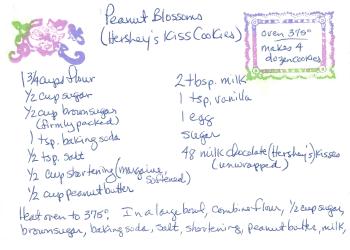 Peanut Blossoms
(Hershey's Kiss Cookies)
oven 375°
makes 4
dozen cookies
1 3/4 cups flour
1/2 cup sugar
1/2 cup brown sugar
(firmly packed)
1 tsp. baking soda
1/2 tsp. salt
1/2 cup shortening (margarine, softened)
1/2 cup peanut butter
2 tbsp. milk
1 tsp. vanilla
1 egg
sugar
48 milk chocolate (Hershey's) Kisses
(unwrapped)
Heat oven to 375°. In a large bowl, combine flour, 1/2 cup sugar,
brown sugar, baking soda, salt, shortening, peanut butter, milk,